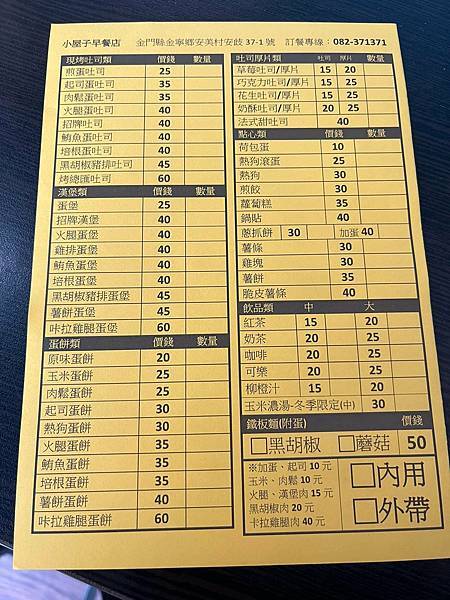 小屋子早餐店 金門縣金寧鄉安美村安歧 37-1 號 訂餐專線：082-371371
現烤吐司類 價錢 數量
煎蛋吐司 25
起司蛋吐司 35
肉鬆蛋吐司 35
火腿蛋吐司 40
招牌吐司 40
鮪魚蛋吐司 40
培根蛋吐司 40
黑胡椒豬排吐司 45
烤總匯吐司 60
漢堡類 價錢 數量
蛋堡 25
招牌漢堡 40
火腿蛋堡 40
雞排蛋堡 40
鮪魚蛋堡 40
培根蛋堡 40
黑胡椒豬排蛋堡 45
薯餅蛋堡 45
咔拉雞腿蛋堡 60
蛋餅類 價錢 數量
原味蛋餅 20
玉米蛋餅 25
肉鬆蛋餅 25
起司蛋餅 30
熱狗蛋餅 30
火腿蛋餅 35
鮪魚蛋餅 35
培根蛋餅 35
薯餅蛋餅 40
咔拉雞腿蛋餅 60
吐司厚片類 吐司 厚片 數量
草莓吐司/厚片 15 20
巧克力吐司/厚片 15 20
花生吐司/厚片 15 20
奶酥吐司/厚片 20 25
法式甜吐司 40
點心類 價錢 數量
荷包蛋 10
熱狗滾蛋 25
熱狗 30
煎餃 30
蘿蔔糕 35
鍋貼 40
蔥抓餅 30 加蛋 40
薯條 30
雞塊 30
薯餅 35
脆皮薯條 40
飲品類 中 大
紅茶 15 20
奶茶 20 25
咖啡 20 25
可樂 20 25
柳橙汁 15 20
玉米濃湯-冬季限定(中) 30
鐵板麵(附蛋) 價錢
□黑胡椒 □蘑菇 50
※加蛋、起司 10 元
玉米、肉鬆 10 元
火腿、漢堡肉 15 元
黑胡椒肉 20 元
卡拉雞腿肉 40 元
□內用
□外帶